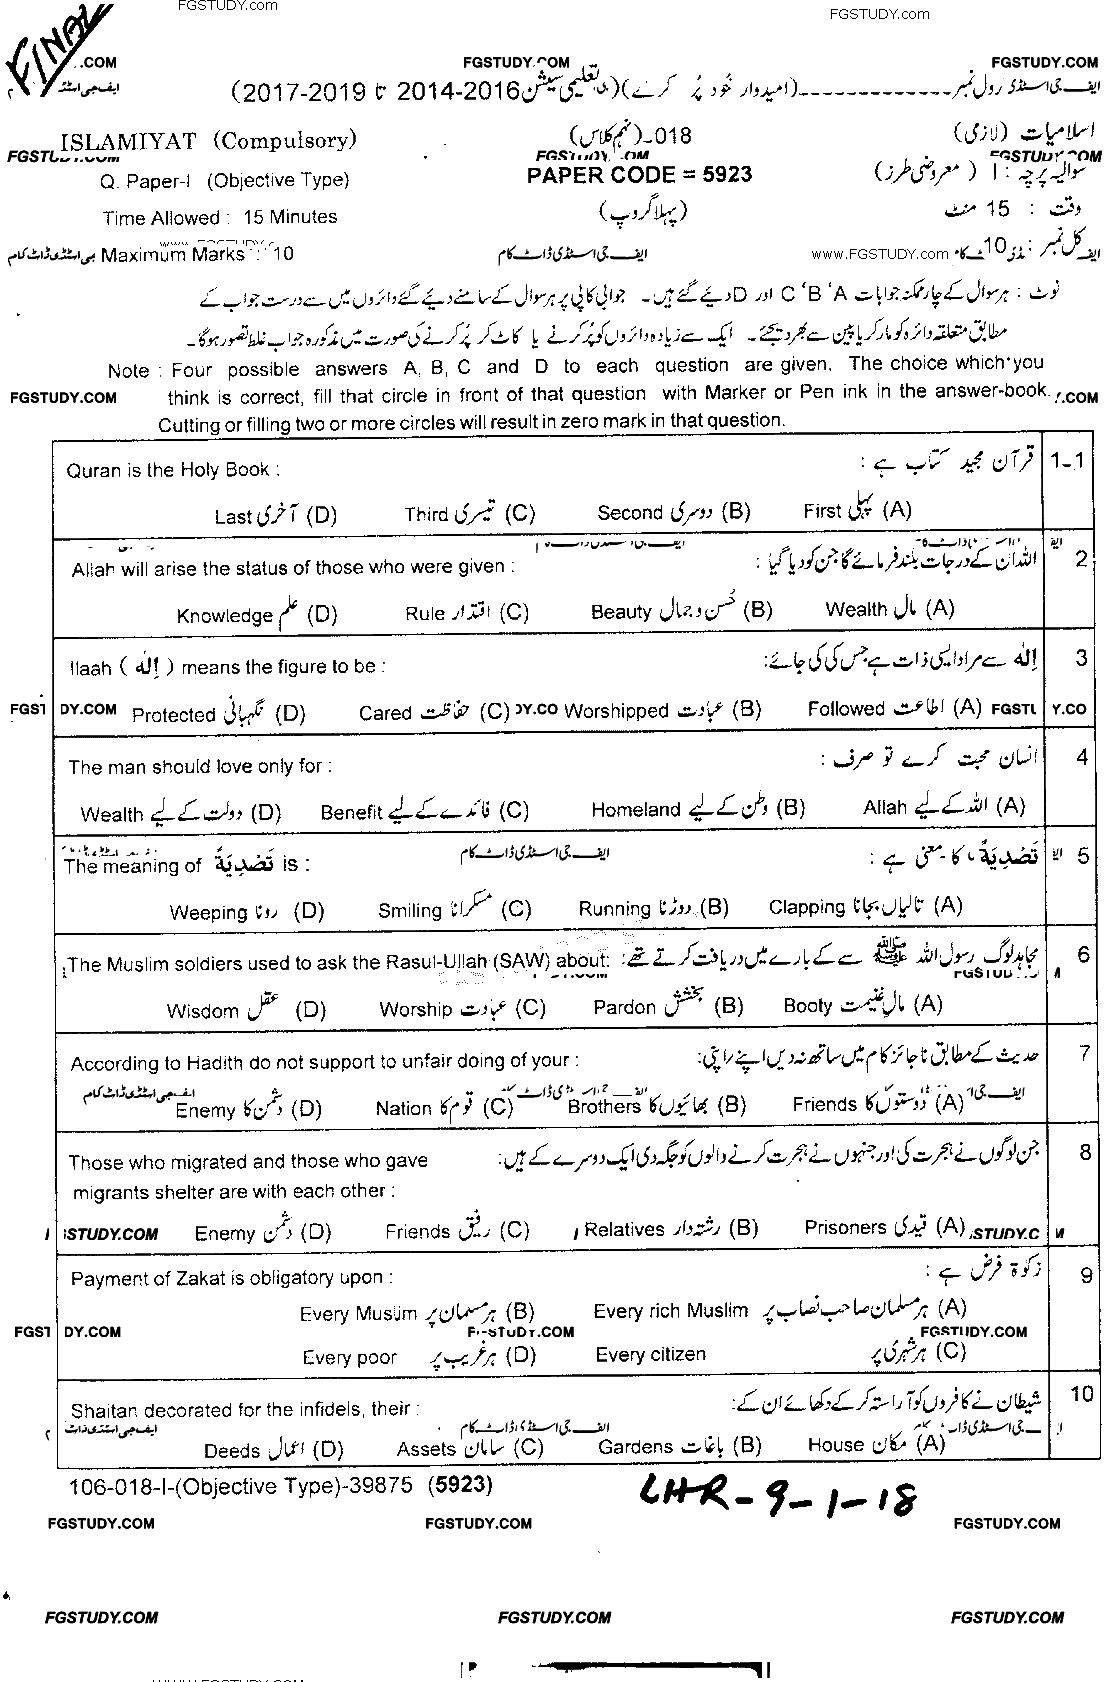 FGSTUDY.com
FGSTUDY.com
FINAL
.COM
FGSTUDY.COM
FGSTUDY.COM
ایف جی اسٹڈی رول نمبر-------------(امیدوار خود پُر کرے)(تعلیمی سیشن 2014-2016 تا 2017-2019)
ISLAMIYAT (Compulsory)
018-(نہم کلاس)
اسلامیات (لازمی)
FGSTUDY.COM
FGSTUDY.COM
FGSTUDY.COM
Q. Paper-I (Objective Type)
PAPER CODE = 5923
سوالیہ پرچہ : I (معروضی طرز)
Time Allowed : 15 Minutes
(پہلا گروپ)
وقت : 15 منٹ
Maximum Marks : 10
ایف جی اسٹڈی ڈاٹ کام
www.FGSTUDY.com
کل نمبر : 10
نوٹ : ہر سوال کے چار ممکنہ جوابات A ،B ،C اور D دیئے گئے ہیں۔ جوابی کاپی پر ہر سوال کے سامنے دیئے گئے دائروں میں سے درست جواب کے
مطابق متعلقہ دائرہ کو مارکر یا پین سے بھر دیجئے۔ ایک سے زیادہ دائروں کو پُر کرنے یا کاٹ کر پُر کرنے کی صورت میں مذکورہ جواب غلط تصور ہوگا۔
Note : Four possible answers A, B, C and D to each question are given. The choice which you
FGSTUDY.COM think is correct, fill that circle in front of that question with Marker or Pen ink in the answer-book. .COM
Cutting or filling two or more circles will result in zero mark in that question.
Quran is the Holy Book : قرآن مجید کتاب ہے : 1-1
(A) پہلی First (B) دوسری Second (C) تیسری Third (D) آخری Last
Allah will arise the status of those who were given : اللہ ان کے درجات بلند فرمائے گا جن کو دیا گیا : 2
(A) مال Wealth (B) حُسن و جمال Beauty (C) اقتدار Rule (D) علم Knowledge
Ilaah ( إِلٰه ) means the figure to be : إِلٰه سے مراد ایسی ذات ہے جس کی کی جائے: 3
(A) اطاعت Followed (B) عبادت Worshipped (C) حفاظت Cared (D) نگہبانی Protected
The man should love only for : انسان محبت کرے تو صرف : 4
(A) اللہ کے لیے Allah (B) وطن کے لیے Homeland (C) فائدے کے لیے Benefit (D) دولت کے لیے Wealth
The meaning of تَصْدِيَةً is : تَصْدِيَةً کا معنی ہے : 5
ایف جی اسٹڈی ڈاٹ کام
(A) تالیاں بجانا Clapping (B) دوڑنا Running (C) مسکرانا Smiling (D) رونا Weeping
The Muslim soldiers used to ask the Rasul-Ullah (SAW) about: مجاہد لوگ رسول اللہ ﷺ سے کے بارے میں دریافت کرتے تھے: 6
(A) مالِ غنیمت Booty (B) بخشش Pardon (C) عبادت Worship (D) عقل Wisdom
According to Hadith do not support to unfair doing of your : حدیث کے مطابق ناجائز کام میں ساتھ نہ دیں اپنے/اپنی: 7
(A) دوستوں کا Friends (B) بھائیوں کا Brothers (C) قوم کا Nation (D) دشمن کا Enemy
Those who migrated and those who gave جن لوگوں نے ہجرت کی اور جنہوں نے ہجرت کرنے والوں کو جگہ دی ایک دوسرے کے ہیں: 8
migrants shelter are with each other :
(A) قیدی Prisoners (B) رشتہ دار Relatives (C) رفیق Friends (D) دشمن Enemy
Payment of Zakat is obligatory upon : زکوٰۃ فرض ہے : 9
(A) ہر مسلمان صاحب نصاب پر Every rich Muslim (B) ہر مسلمان پر Every Muslim
FGSTUDY.COM
(C) ہر شہری پر Every citizen (D) ہر غریب پر Every poor
Shaitan decorated for the infidels, their : شیطان نے کافروں کو آراستہ کر کے دکھائے ان کے: 10
ایف جی اسٹڈی ڈاٹ کام
(A) مکان House (B) باغات Gardens (C) سامان Assets (D) اعمال Deeds
106-018-I-(Objective Type)-39875 (5923)
LHR-9-1-18
FGSTUDY.COM FGSTUDY.COM FGSTUDY.COM
FGSTUDY.COM FGSTUDY.COM FGSTUDY.COM